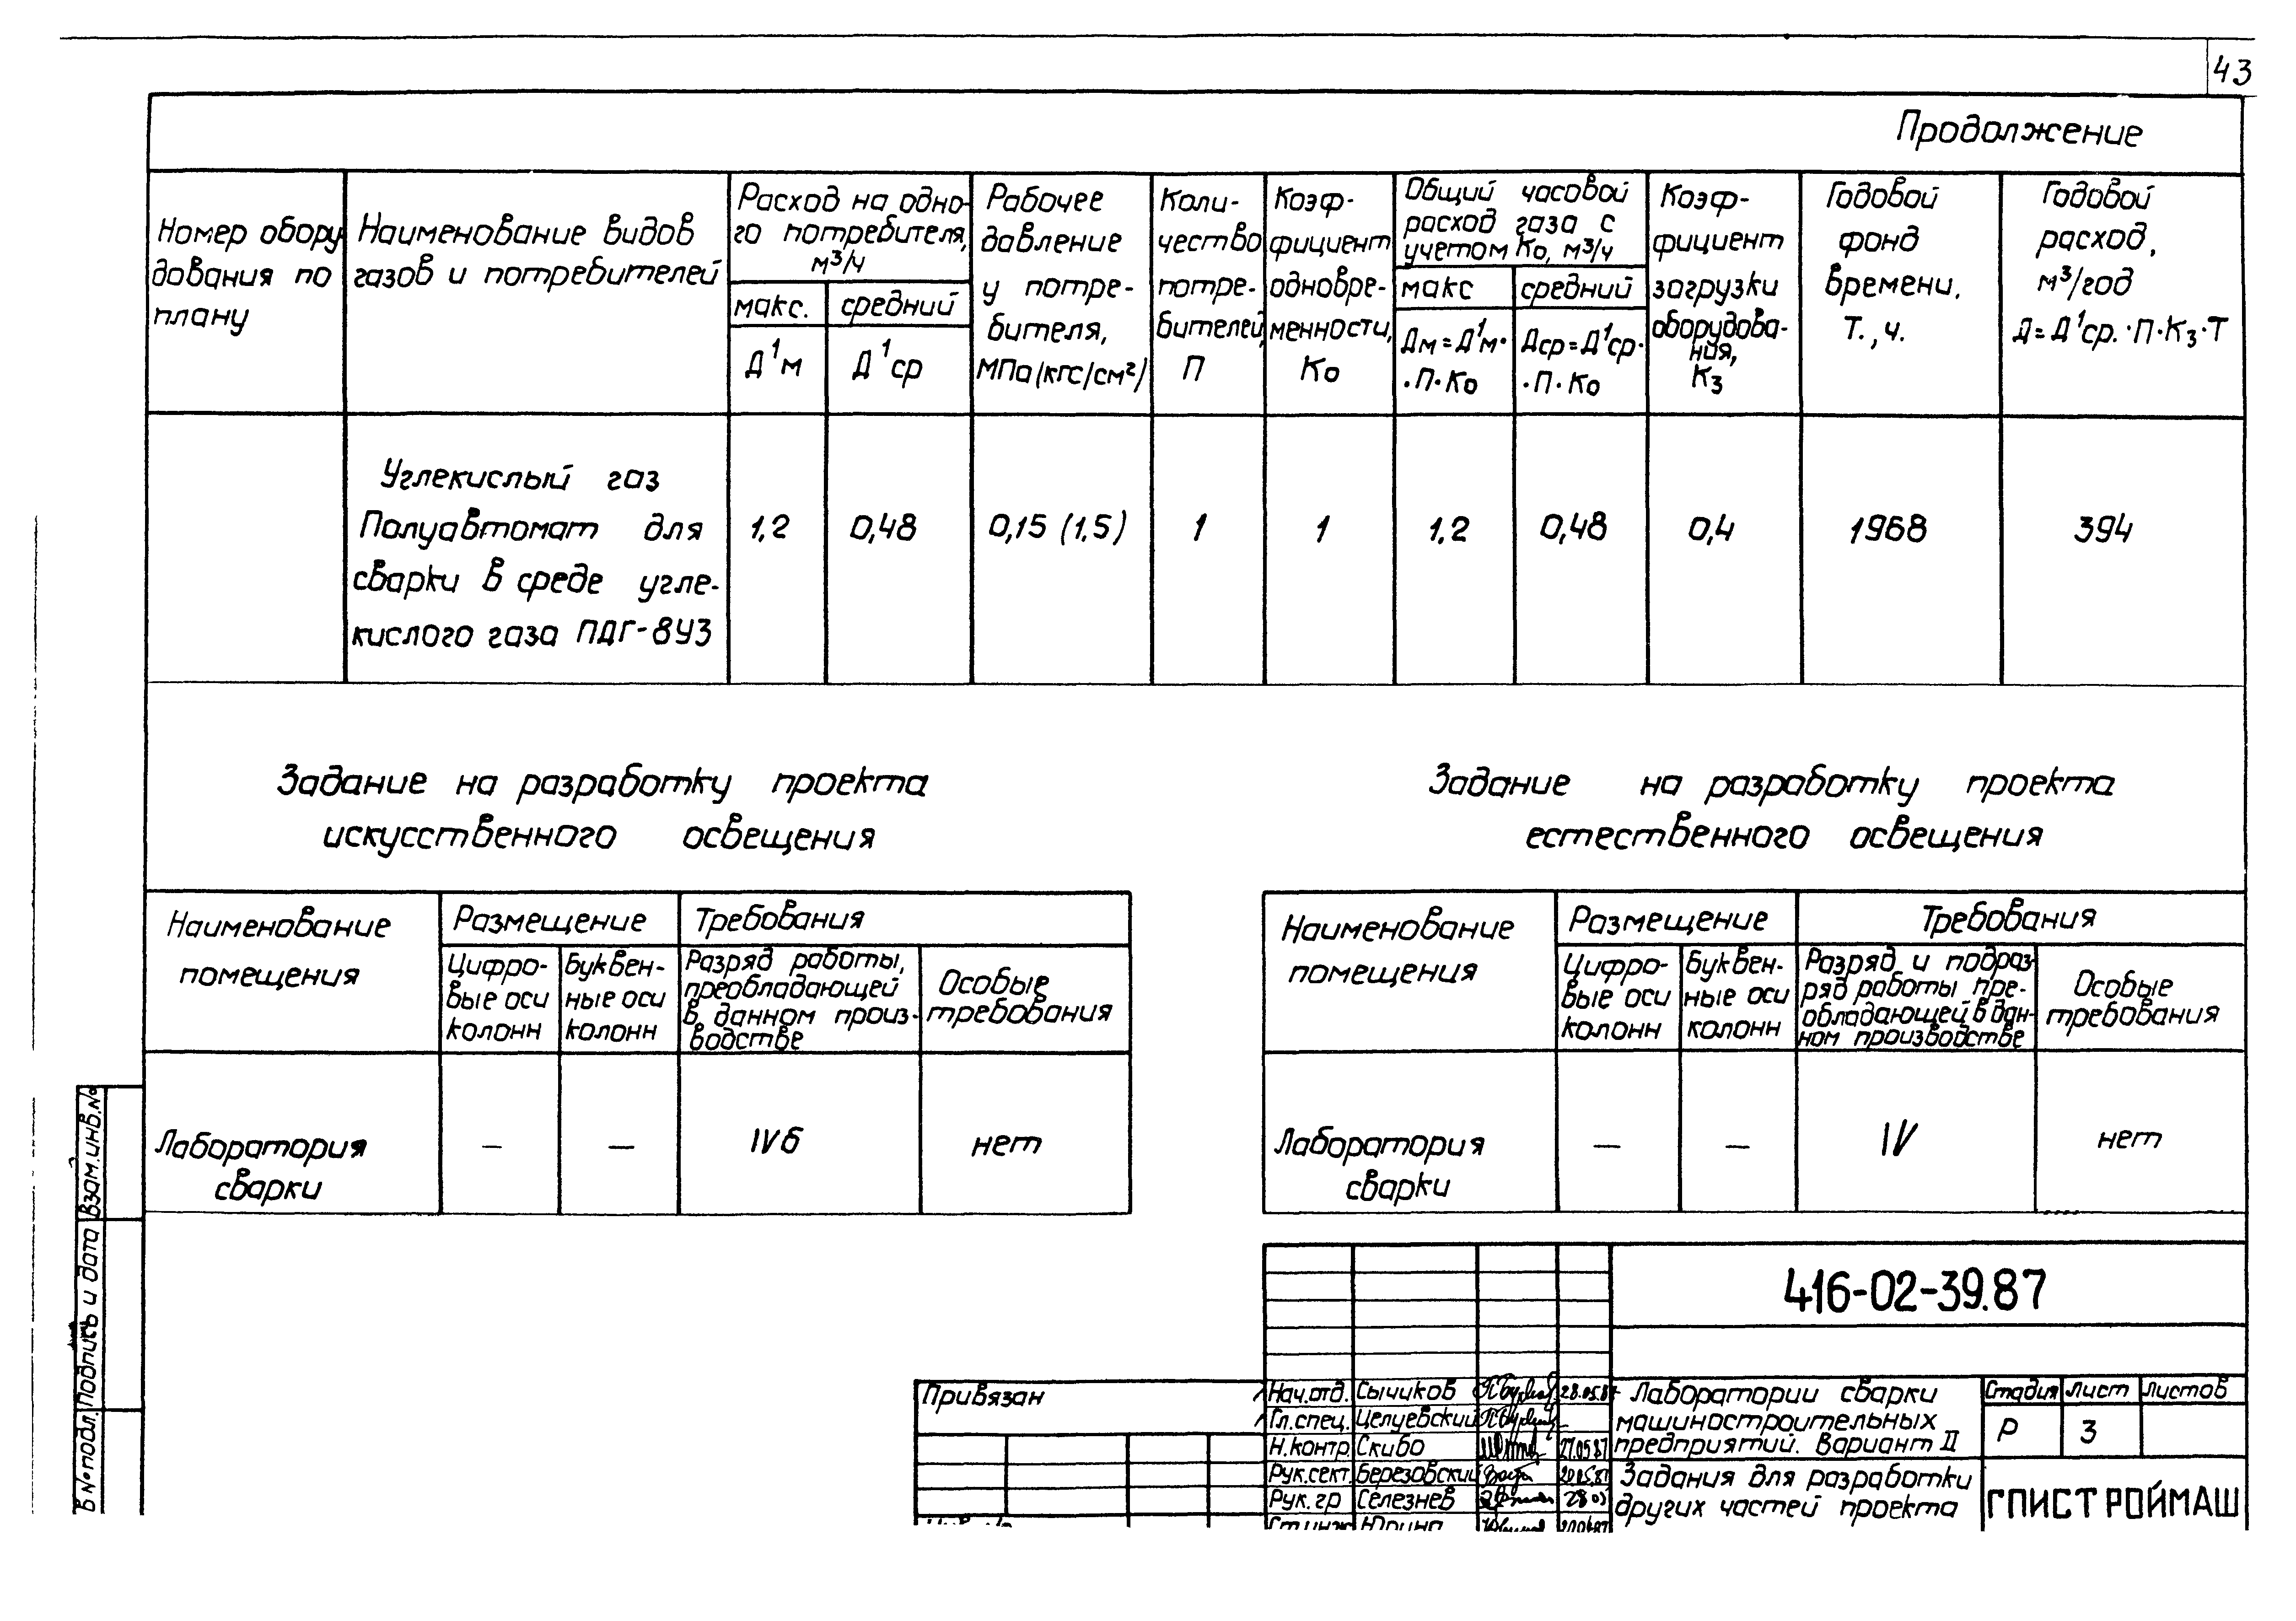 43
Продолжение
Номер обору
дования по
плану
Наименование видов
газов и потребителей
Расход на одно-
го потребителя,
м³/ч
макс.
средний
Д¹м
Д¹ср
Рабочее
давление
у потре-
бителя,
МПа (кгс/см²)
Коли-
чество
потре-
бителей,
П
Коэф-
фициент
одновре-
менности,
Ко
Общий часовой
расход газа с
учетом Ко, м³/ч
макс
средний
Дм=Д¹м·
·П·Ко
Дср=Д¹ср·
·П·Ко
Коэф-
фициент
загрузки
оборудова-
ния,
Кз
Годовой
фонд
времени.
Т., ч.
Годовой
расход,
м³/год
Д=Д¹ср.·П·Кз·Т
Углекислый газ
Полуавтомат для
сварки в среде угле-
кислого газа ПДГ-8У3
1,2
0,48
0,15 (1,5)
1
1
1,2
0,48
0,4
1968
394
Задание на разработку проекта
искусственного освещения
Наименование
помещения
Размещение
Требования
Цифро-
вые оси
колонн
Буквен-
ные оси
колонн
Разряд работы,
преобладающей
в данном произ-
водстве
Особые
требования
Лаборатория
сварки
—
—
IVб
нет
Задание на разработку проекта
естественного освещения
Наименование
помещения
Размещение
Требования
Цифро-
вые оси
колонн
Буквен-
ные оси
колонн
Разряд и подраз-
ряд работы пре-
обладающей в дан-
ном производстве
Особые
требования
Лаборатория
сварки
—
—
IV
нет
Взам.инв.№
Подпись и дата
В № подл.
Привязан
Нач.отд. Сычиков 28.05.87
Гл.спец. Целуевский
Н.контр Скибо 27.05.87
Рук.сект. Березовский
Рук.гр Селезнев 28.05
Ст.инж Юрина
416-02-39.87
Лаборатории сварки
машиностроительных
предприятий. Вариант II
Стадия Лист Листов
Р 3
Задания для разработки
других частей проекта
ГПИСТРОЙМАШ